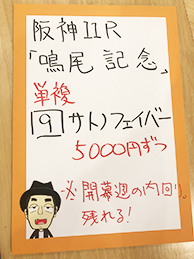 阪神11R
「鳴尾記念」
単複
9 サトノフェイバー
5000円ずつ
※開幕週の内回り。
残れる！